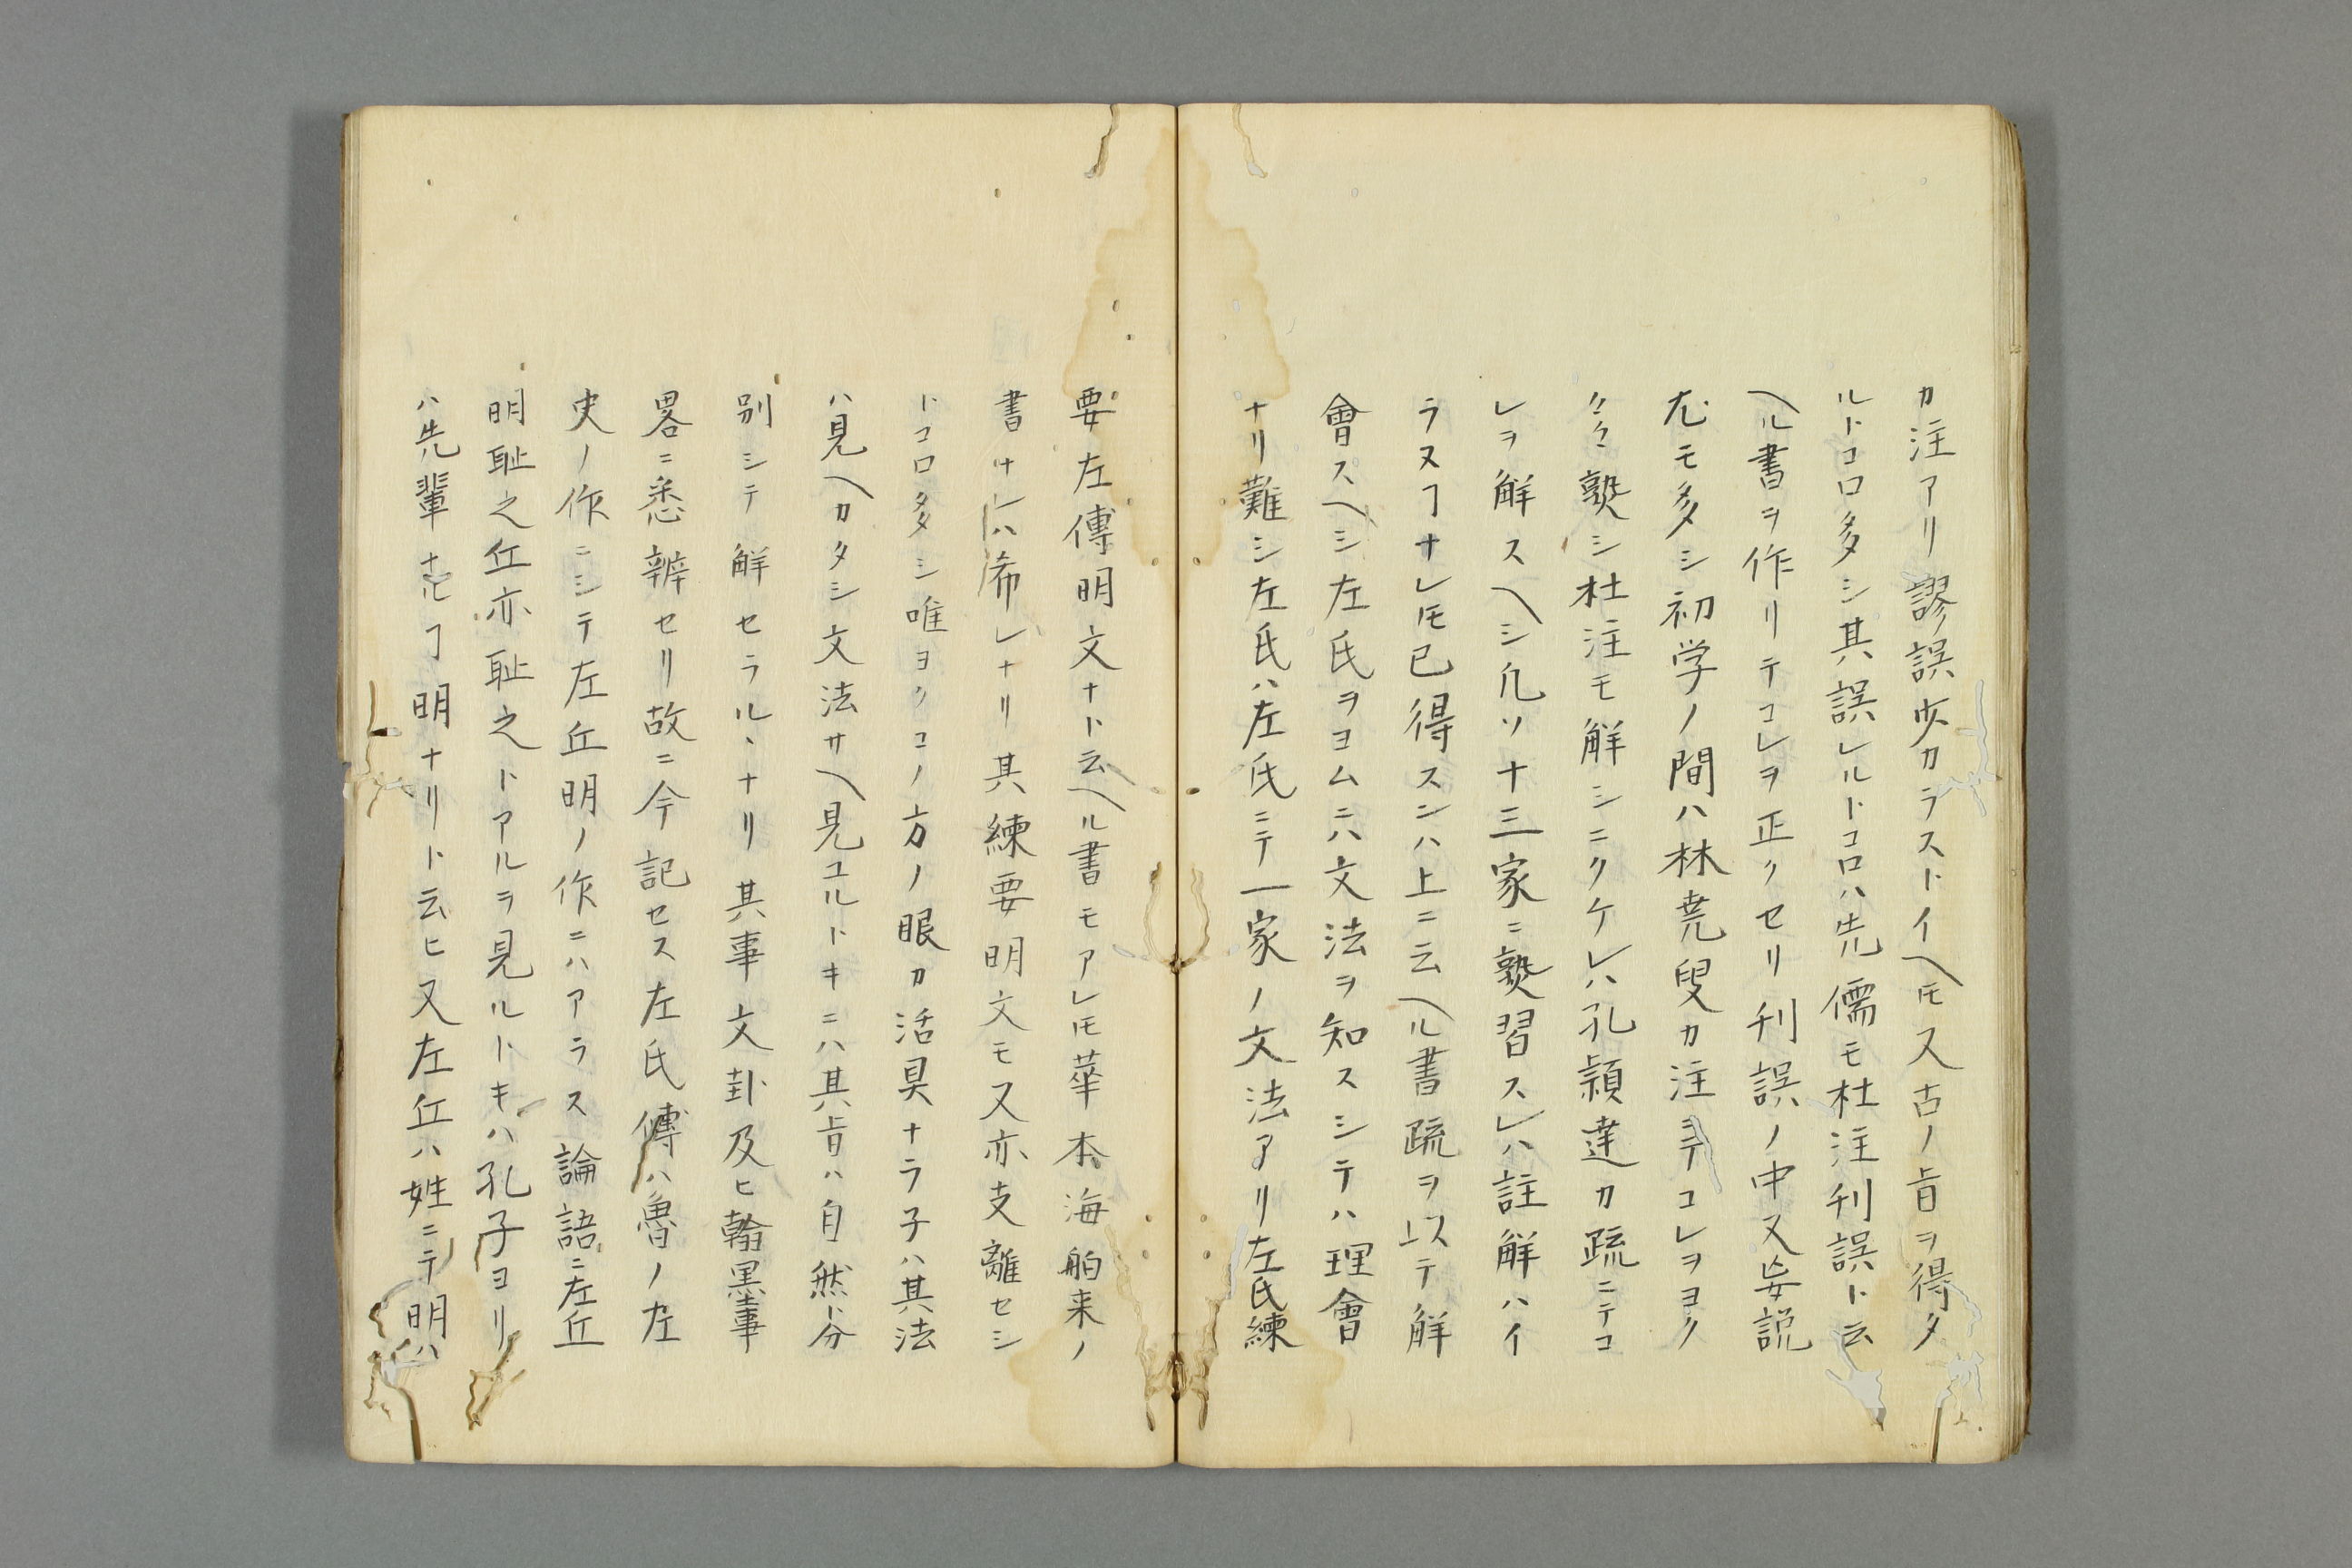 カ注アリ謬誤少カラストイヘ𪜈又古ノ旨ヲ得タ
ルトコロ多シ其誤レルトコロハ先儒モ杜注刊誤ト云
ヘル書ヲ作リテコレヲ正クセリ刊誤ノ中又妄説
尤モ多シ初学ノ間ハ林堯叟カ注ニテコレヲヨク
〱熟シ杜注モ解シニクケレハ孔頴達カ疏ニテコ
レヲ解スヘシ凡ソ十三家ニ熟習スレハ註解ハイ
ラヌヿナレ𪜈已得スンハ上ニ云ヘル書疏ヲ以テ解
會スヘシ左氏ヲヨムニハ文法ヲ知スシテハ理會
ナリ難シ左氏ハ左氏ニテ一家ノ文法アリ左氏練
要左傳明文ナト云ヘル書モアレ𪜈華本海舶来ノ
書ナレハ希レナリ其練要明文モ又亦支離セシ
トコロ多シ唯ヨクコノ方ノ眼カ活具ナラ子ハ其法
ハ見ヘカタシ文法サヘ見ユルトキニハ其旨ハ自然ト分
別シテ解セラルヽナリ其事文卦及ヒ翰墨事
畧ニ悉辨セリ故ニ今記セス左氏傳ハ魯ノ左
史ノ作ニシテ左丘明ノ作ニハアラス論語ニ左丘
明耻之丘亦耻之トアルヲ見ルトキハ孔子ヨリ
ハ先輩ナルヿ明ナリト云ヒ又左丘ハ姓ニテ明ハ